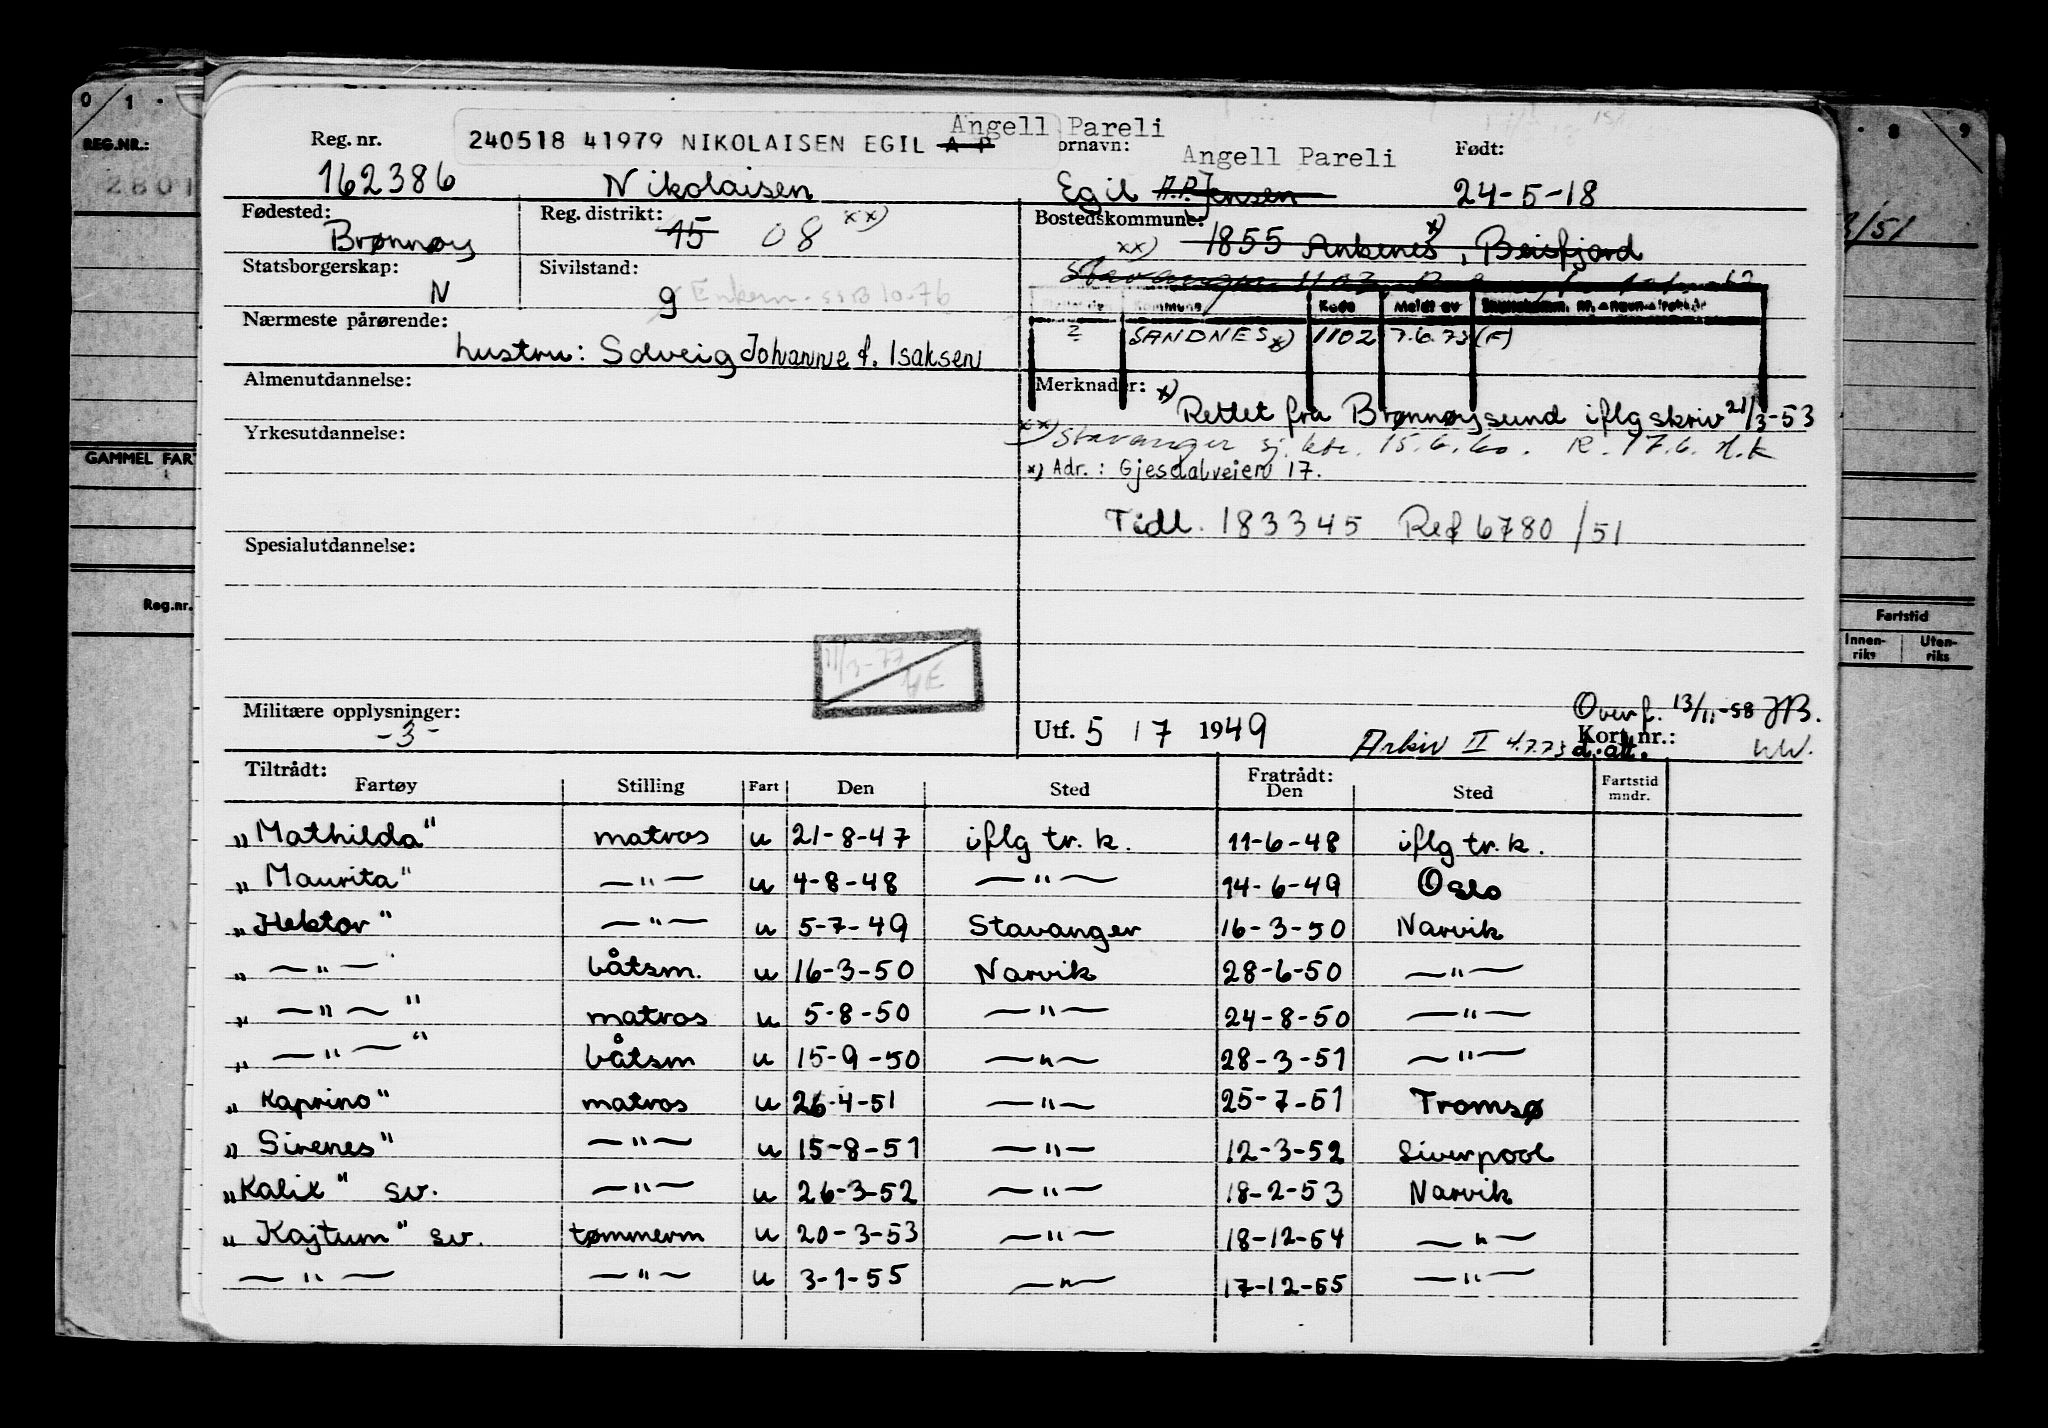 0 1
REG.NR.:
GAMMEL FAR
Reg.nr.
8 9
Fartstid
Innen-riks Uten-riks
Angell Pareli
Reg. nr. 240518 41979 NIKOLAISEN EGIL A P ornavn: Angell Pareli Født:
162386 Nikolaisen Egil A.P. Jensen 24-5-18
Fødested: Brønnøy Reg. distrikt: 15 08 xx) Bostedskommune: 1855 Ankenes x), Beisfjord
xx) Stavanger 1103
Statsborgerskap: N Sivilstand: g Enkem. SSB 10-76
Kommune Kode Meldt av
2 SANDNES x) 1102 7.6.73 (F)
Nærmeste pårørende:
hustru: Solveig Johanne f. Isaksen
Almenutdannelse:
Merknader: x) Rettet fra Brønnøysund iflg skriv 21/3-53
Yrkesutdannelse:
xx) Stavanger sj. ktr. 15.6.60. R. 17.6. H.K
x) Adr.: Gjesdalveien 17.
Tidl. 183345 Ref 6780/51
Spesialutdannelse:
11/3-77
Militære opplysninger:
-3-
Overf. 13/11-58 JB.
Utf. 5 / 7 1949 Arkiv II 4.7.73 Kort nr.:
d. alt.
Tiltrådt: Fratrådt:
Fartøy Stilling Fart Den Sted Den Sted Fartstid mndr.
„Mathilda" matros u 21-8-47 iflg tr. k. 11-6-48 iflg tr. k.
„Maurita" —"— u 4-8-48 —"— 14-6-49 Oslo
„Hektor" —"— u 5-7-49 Stavanger 16-3-50 Narvik
„ —"— båtsm. u 16-3-50 Narvik 28-6-50 —"—
„ —"— " matros u 5-8-50 —"— 24-8-50 —"—
„ —"— " båtsm u 15-9-50 —"— 28-3-51 —"—
„Kaprino" matros u 26-4-51 —"— 25-7-51 Tromsø
„Sirenes" —"— u 15-8-51 —"— 12-3-52 Liverpool
„Kalix" sv. —"— u 26-3-52 —"— 18-2-53 Narvik
„Kajtum" sv. tømmerm u 20-3-53 —"— 18-12-54 —"—
—"— —"— u 3-1-55 —"— 17-12-55 —"—